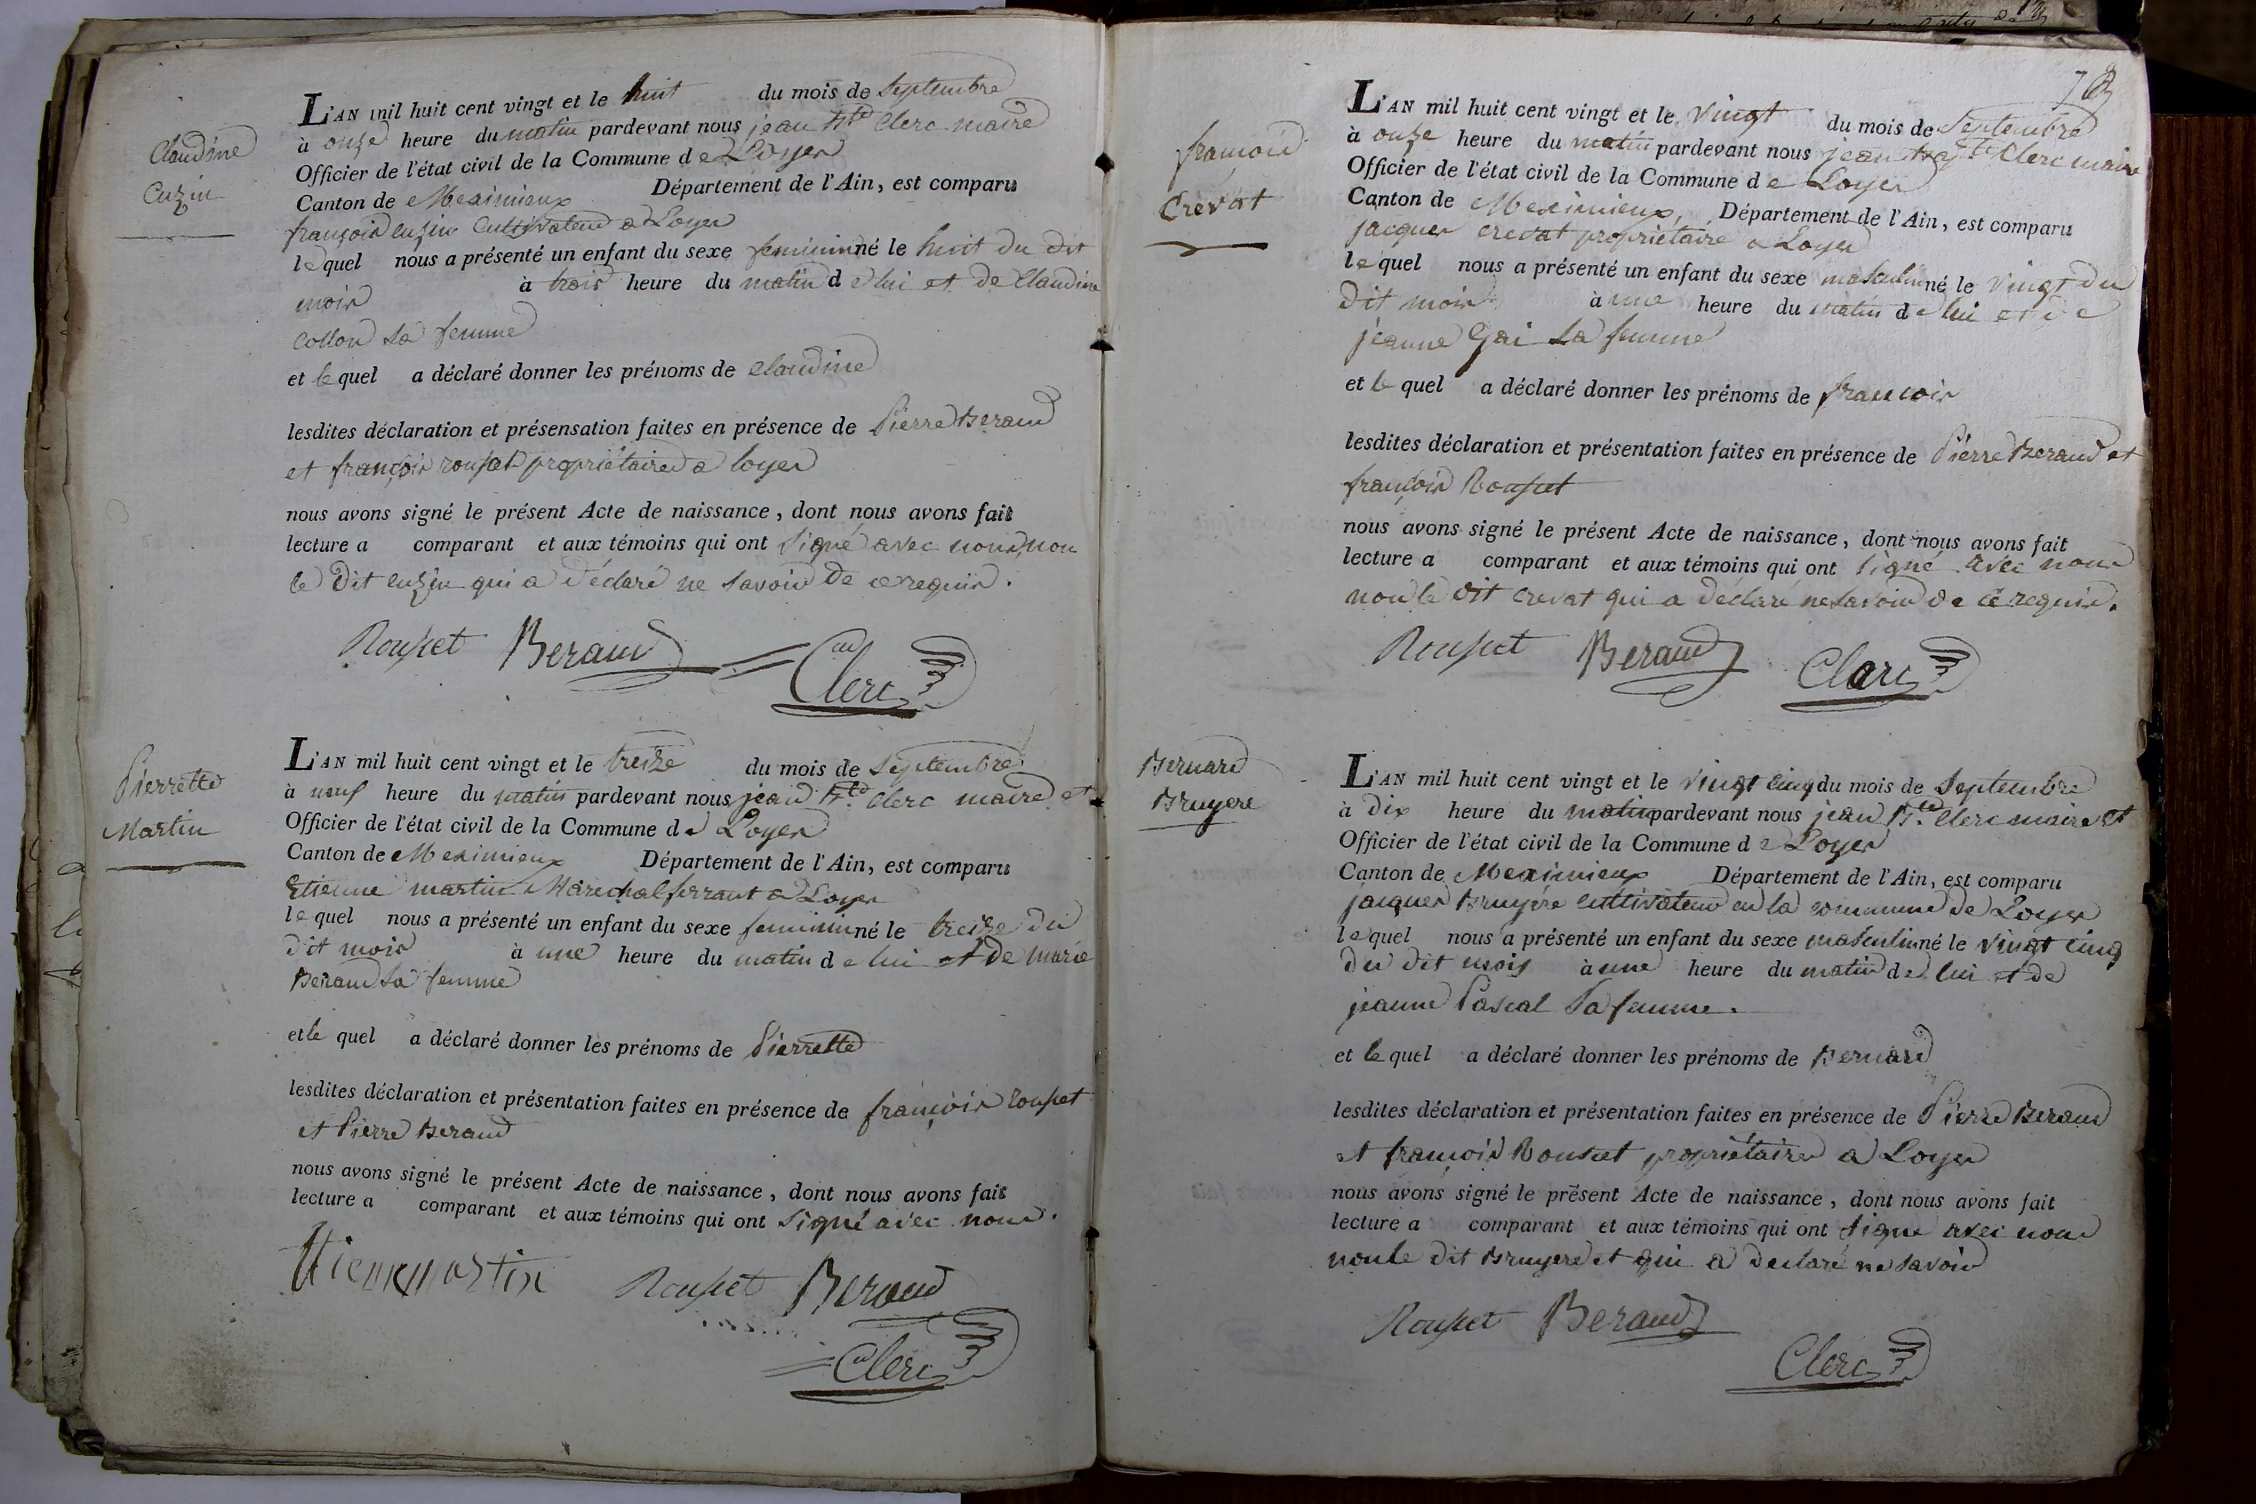 Claudine
Cuzin
L'AN mil huit cent vingt et le huit du mois de Septembre
à onze heure du matin pardevant nous jean Bte Clerc maire
Officier de l'état civil de la Commune de Loyes
Canton de Meximieux Département de l'Ain, est comparu
françois cuzin Cultivateur a Loyes
lequel nous a présenté un enfant du sexe feminin né le huit du dit
mois à trois heure du matin de lui et de Claudine
Collon sa femme
et lequel a déclaré donner les prénoms de Claudine
lesdites déclaration et présensation faites en présence de Pierre Beraud
et françois rousset propriétaires a loyes
nous avons signé le présent Acte de naissance, dont nous avons fait
lecture a comparant et aux témoins qui ont signé avec nous, non
le dit cuzin qui a déclaré ne savoir de ce requis.
Rousset Beraud Clerc
Pierrette
Martin
L'AN mil huit cent vingt et le treize du mois de Septembre
à neuf heure du matin pardevant nous jean Bte Clerc maire et
Officier de l'état civil de la Commune de Loyes
Canton de Meximieux Département de l'Ain, est comparu
Etienne martin Marechal ferrant a Loyes
lequel nous a présenté un enfant du sexe feminin né le treize du
dit mois à une heure du matin de lui et de marie
Beraud sa femme
et le quel a déclaré donner les prénoms de Pierrette
lesdites déclaration et présentation faites en présence de françois rousset
et Pierre Beraud
nous avons signé le présent Acte de naissance, dont nous avons fait
lecture a comparant et aux témoins qui ont signé avec nous.
Etienne martin Rousset Beraud
Clerc
françois
Crevat
L'AN mil huit cent vingt et le vingt du mois de Septembre
à onze heure du matin pardevant nous jean Bapte Clerc maire
Officier de l'état civil de la Commune de Loyes
Canton de Meximieux, Département de l'Ain, est comparu
jacques crevat propriétaire a Loyes
lequel nous a présenté un enfant du sexe masculin né le vingt du
dit mois à une heure du matin de lui et de
jeanne Gai sa femme
et le quel a déclaré donner les prénoms de françois
lesdites déclaration et présentation faites en présence de Pierre Beraud et
françois Rousset
nous avons signé le présent Acte de naissance, dont nous avons fait
lecture a comparant et aux témoins qui ont signé avec nous
non le dit crevat qui a déclaré ne savoir de ce requis.
Rousset Beraud Clerc
Bernard
Bruyere
L'AN mil huit cent vingt et le vingt cinq du mois de Septembre
à dix heure du matin pardevant nous jean Bte Clerc maire et
Officier de l'état civil de la Commune de Loyes
Canton de Meximieux Département de l'Ain, est comparu
jacques Bruyére cultivateur en la commune de Loyes
lequel nous a présenté un enfant du sexe masculin né le vingt cinq
du dit mois à une heure du matin de lui et de
jeanne Pascal sa femme.
et le quel a déclaré donner les prénoms de Bernard
lesdites déclaration et présentation faites en présence de Pierre Beraud
et françois Rousset propriétaires a Loyes
nous avons signé le présent Acte de naissance, dont nous avons fait
lecture a comparant et aux témoins qui ont signé avec nous
non le dit Bruyere et qui a declaré ne savoir
Rousset Beraud
Clerc